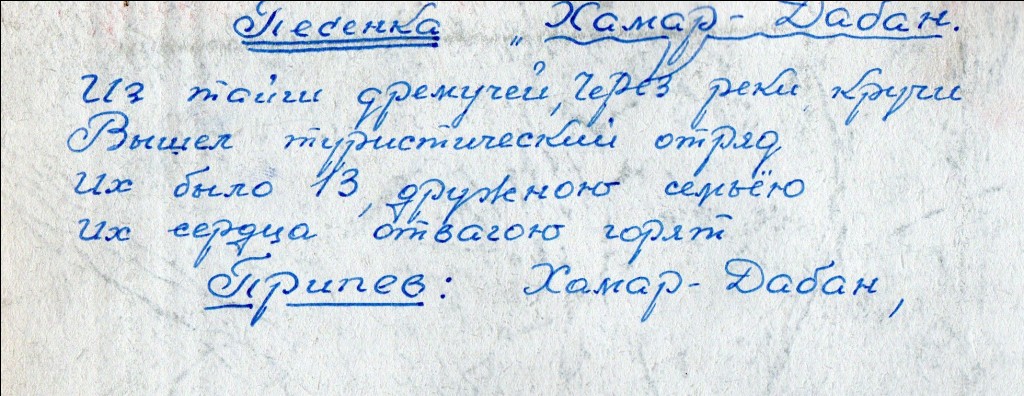 Песенка „Хамар-Дабан.
Из тайги дремучей, Через реки, кручи
Вышел туристический отряд
Их было 13, дружною семьёю
Их сердца отвагою горят
Припев: Хамар-Дабан,